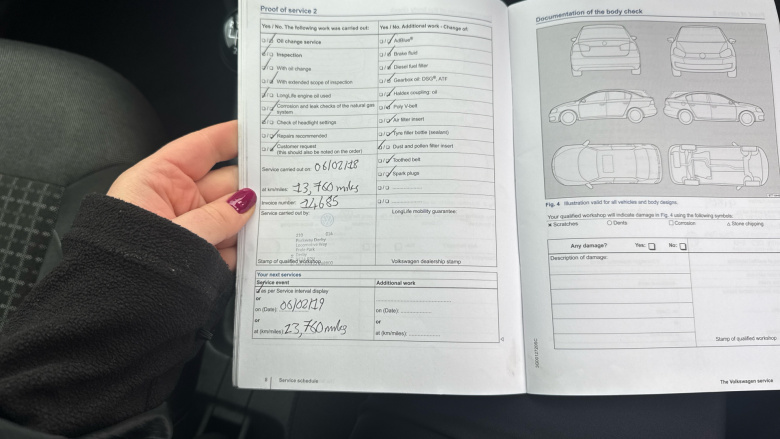 Proof of service 2
Yes / No. The following work was carried out:
Oil change service
Inspection
With oil change
With extended scope of inspection
LongLife engine oil used
Corrosion and leak checks of the natural gas
system
Check of headlight settings
Repairs recommended
Customer request
(this should also be noted on the order)
Service carried out on: 06/02/18
at km/miles: 13,760 miles
Invoice number: 14685
Service carried out by:
Stamp of qualified workshop
Yes / No. Additional work - Change of:
AdBlue®
Brake fluid
Diesel fuel filter
Gearbox oil: DSG®, ATF
Haldex coupling oil
Poly V-belt
Air filter insert
Tyre filler bottle (sealant)
Dust and pollen filter insert
Toothed belt
Spark plugs
LongLife mobility guarantee:
Volkswagen dealership stamp
Your next services
Service event
as per Service interval display
or
on (Date): 06/02/19
or
at (km/miles): 23,760 miles
Additional work
on (Date):
or
at (km/miles):
8 Service schedule
Documentation of the body check
Fig. 4 Illustration valid for all vehicles and body designs.
Your qualified workshop will indicate damage in Fig. 4 using the following symbols:
Scratches Dents Corrosion Stone chipping
Any damage? Yes: No:
Description of damage:
Stamp of qualified workshop
The Volkswagen service